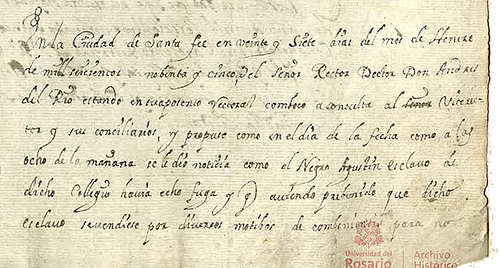 En la Ciudad de Santa fee en veinte y Siete dias del mes de Henero
de mill seiscientos nobenta y cinco, el Señor Rector Doctor Don Andres
del Rio estando en su aposento Rectoral comboco a consulta al señor Vicerec-
tor y sus conciliarios, y propuso como en el dia de la fecha como a las
ocho de la mañana se le dio noticia como el Negro Agustin esclavo de
dicho Collegio havia echo fuga y q aviendo prebenido que dicho
esclavo se vendiese por diversos motibos de combeniencia para no
Universidad del
Rosario
Archivo
Histórico